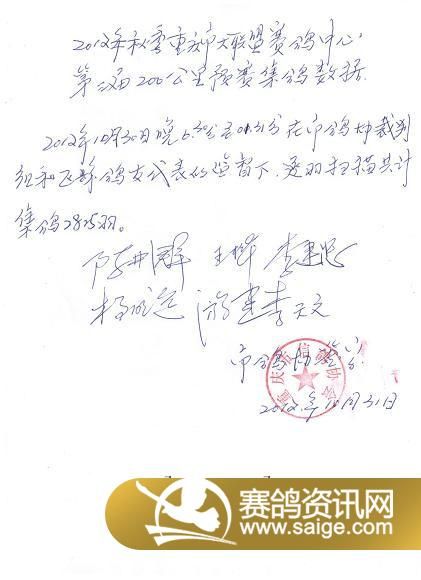 2012年秋季重庆市大联盟赛鸽中心
第二届200公里预赛集鸽数据
2012年10月30日晚6:30分至01:31分在市鸽协裁判
组和飞赛鸽友代表的监督下，逐羽扫描共计
集鸽2825羽。
李天文
市鸽协
重庆市信鸽协会
2012年10月31日
赛鸽资讯网
www.saige.com